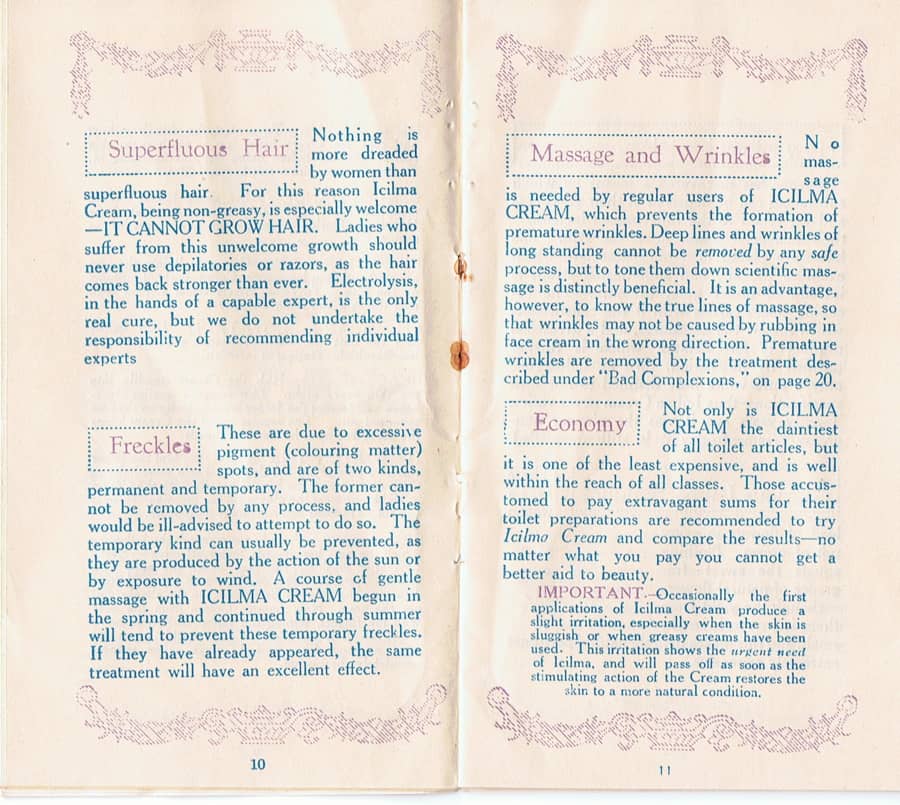 Superfluous Hair
Nothing is
more dreaded
by women than
superfluous hair. For this reason Icilma
Cream, being non-greasy, is especially welcome
—IT CANNOT GROW HAIR. Ladies who
suffer from this unwelcome growth should
never use depilatories or razors, as the hair
comes back stronger than ever. Electrolysis,
in the hands of a capable expert, is the only
real cure, but we do not undertake the
responsibility of recommending individual
experts
Freckles
These are due to excessive
pigment (colouring matter)
spots, and are of two kinds,
permanent and temporary. The former can-
not be removed by any process, and ladies
would be ill-advised to attempt to do so. The
temporary kind can usually be prevented, as
they are produced by the action of the sun or
by exposure to wind. A course of gentle
massage with ICILMA CREAM begun in
the spring and continued through summer
will tend to prevent these temporary freckles.
If they have already appeared, the same
treatment will have an excellent effect.
10
Massage and Wrinkles
No
mas-
sage
is needed by regular users of ICILMA
CREAM, which prevents the formation of
premature wrinkles. Deep lines and wrinkles of
long standing cannot be removed by any safe
process, but to tone them down scientific mas-
sage is distinctly beneficial. It is an advantage,
however, to know the true lines of massage, so
that wrinkles may not be caused by rubbing in
face cream in the wrong direction. Premature
wrinkles are removed by the treatment des-
cribed under "Bad Complexions," on page 20.
Economy
Not only is ICILMA
CREAM the daintiest
of all toilet articles, but
it is one of the least expensive, and is well
within the reach of all classes. Those accus-
tomed to pay extravagant sums for their
toilet preparations are recommended to try
Icilma Cream and compare the results—no
matter what you pay you cannot get a
better aid to beauty.
IMPORTANT.—Occasionally the first
applications of Icilma Cream produce a
slight irritation, especially when the skin is
sluggish or when greasy creams have been
used. This irritation shows the urgent need
of Icilma, and will pass off as soon as the
stimulating action of the Cream restores the
skin to a more natural condition.
11